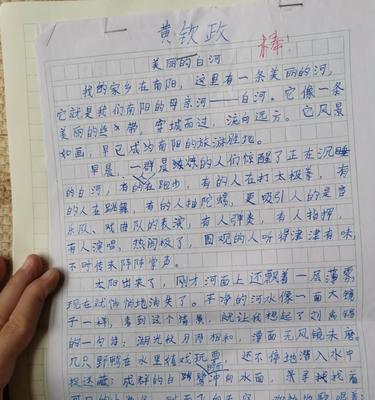 黄钦政
棒!
美丽的白河
我的家乡在南阳,这里有一条美丽的河,
它就是我们南阳的母亲河——白河。它像一条
美丽的丝带,穿城而过,流向远方。它风景
如画,早已成为南阳的旅游胜地。
早晨,一群晨练的人们惊醒了正在沉睡
的白河,有的在跑步,有的人在打太极拳,有
的人在跳舞,有的人抽陀螺,更吸引人的是音
乐队、戏曲队的表演,有人弹奏,有人指挥,
有人演唱,热闹极了,围观的人听得津津有味,
不时传来阵阵掌声。
太阳出来了,刚才河面上还飘着一层薄雾,
现在就悄悄地消失了。干净的河水像一面大镜
子一样,看到这个情景,就让我想起了刘禹锡
的一句诗:湖光秋月两相和,潭面无风镜未磨。
几只野鸭在水里嬉戏玩耍,还不停地潜入水中
捉迷藏;成群的白鹭冲向水面,